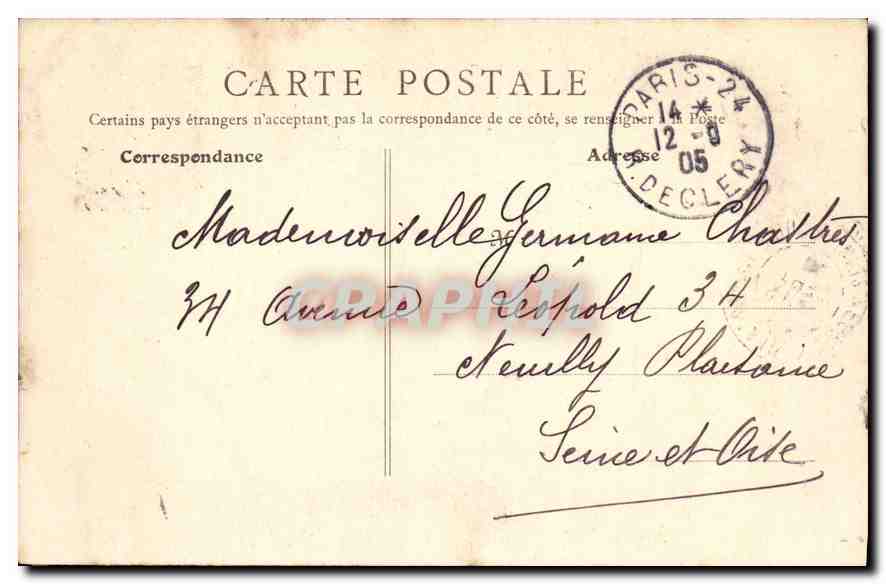 CARTE POSTALE
Certains pays étrangers n'acceptant pas la correspondance de ce côté, se renseigner à la Poste
Correspondance
Adresse
PARIS - 24
14 *
12 - 9
05
R. DE CLERY
Mademoiselle Germaine Chastres
34 Avenue Léopold 34
Neuilly Plaisance
Seine et Oise
CPAPHIL